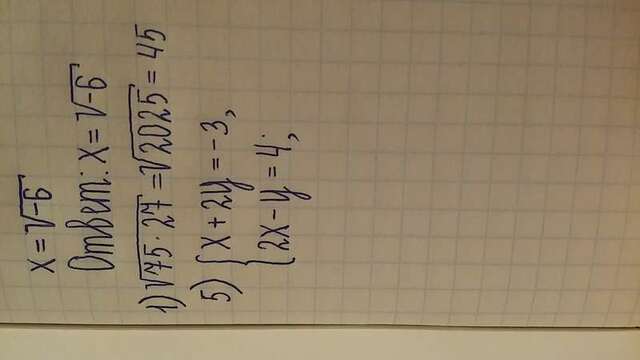 x = √-6
Ответ: x = √-6
1) √75 · 27 = √2025 = 45
5) { x + 2y = -3,
2x - y = 4;